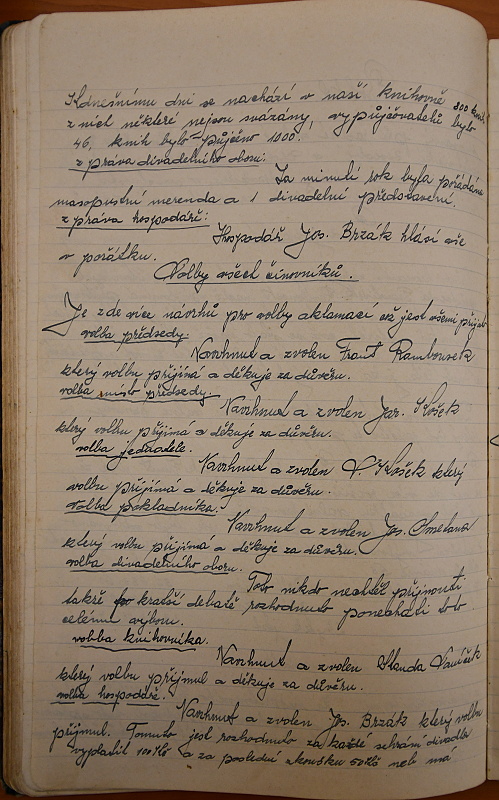 K dnešnímu dni se nachází v naší knihovně 800 knih
z nich některé nejsou svázány, vypůjčovatelů bylo
46, knih bylo půjčeno 1000.
zpráva divadelního oboru:
Za minulí rok byla pořádána
masopustní merenda a 1 divadelní představení.
zpráva hospodáře:
Hospodář Jos. Brzák hlásí vše
v pořátku.
Volby všech činovníků.
Je zde více návrhů pro volby aklamací což jest všemi přijato
volba předsedy.
Navrhnut a zvolen Frant Rambousek
který volbu přijímá a děkuje za důvěru.
volba místo předsedy.
Navrhnut a zvolen Jar. Košek
který volbu přijímá a děkuje za důvěru.
volba jednatele.
Navrhnut a zvolen V. Košek který
volbu přijímá a děkuje za důvěru.
Volba pokladníka.
Navrhnut a zvolen Jos. Smetana
který volbu přijímá a děkuje za důvěru.
volba divadelního oboru.
Toto nikdo nechtěl přijmouti
takže po kratší debatě rozhodnuto ponechati toto
celému výboru.
volba knihovníka.
Navrhnut a zvolen Standa
který volbu přijmul a děkuje za důvěru.
volba hospodáře.
Navrhnut a zvolen Jos. Brzák který volbu
přijmul. Tomuto jest rozhodnuto za každé sehrání divadla
vyplatil 100 Kč a za poslední zkoušku 50 Kč neb má